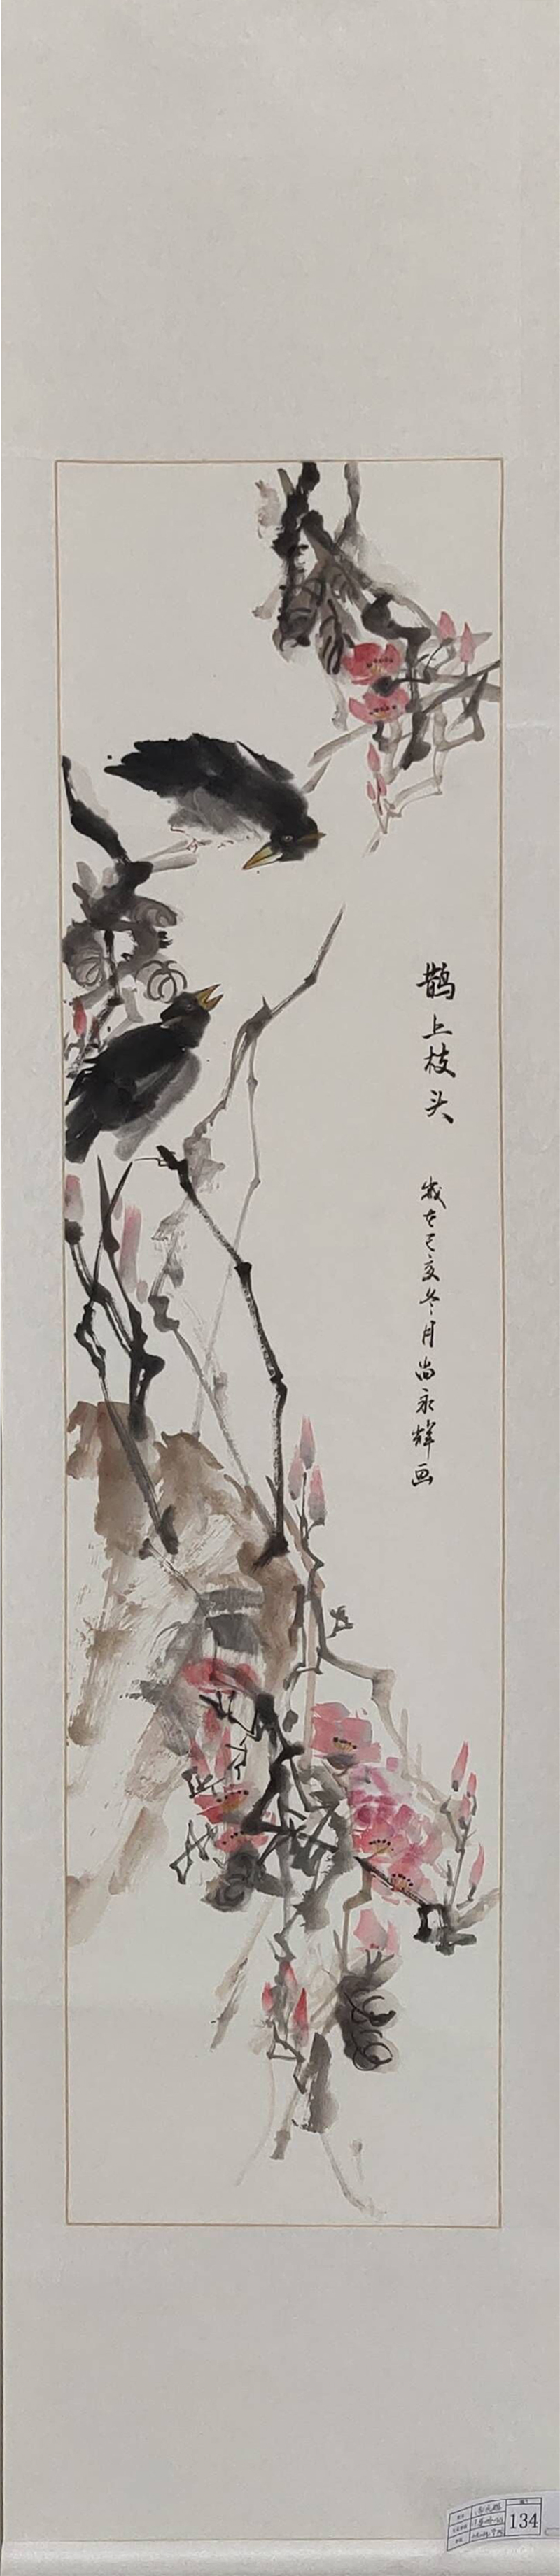 鹊上枝头
岁在己亥冬月尚永辉画
134